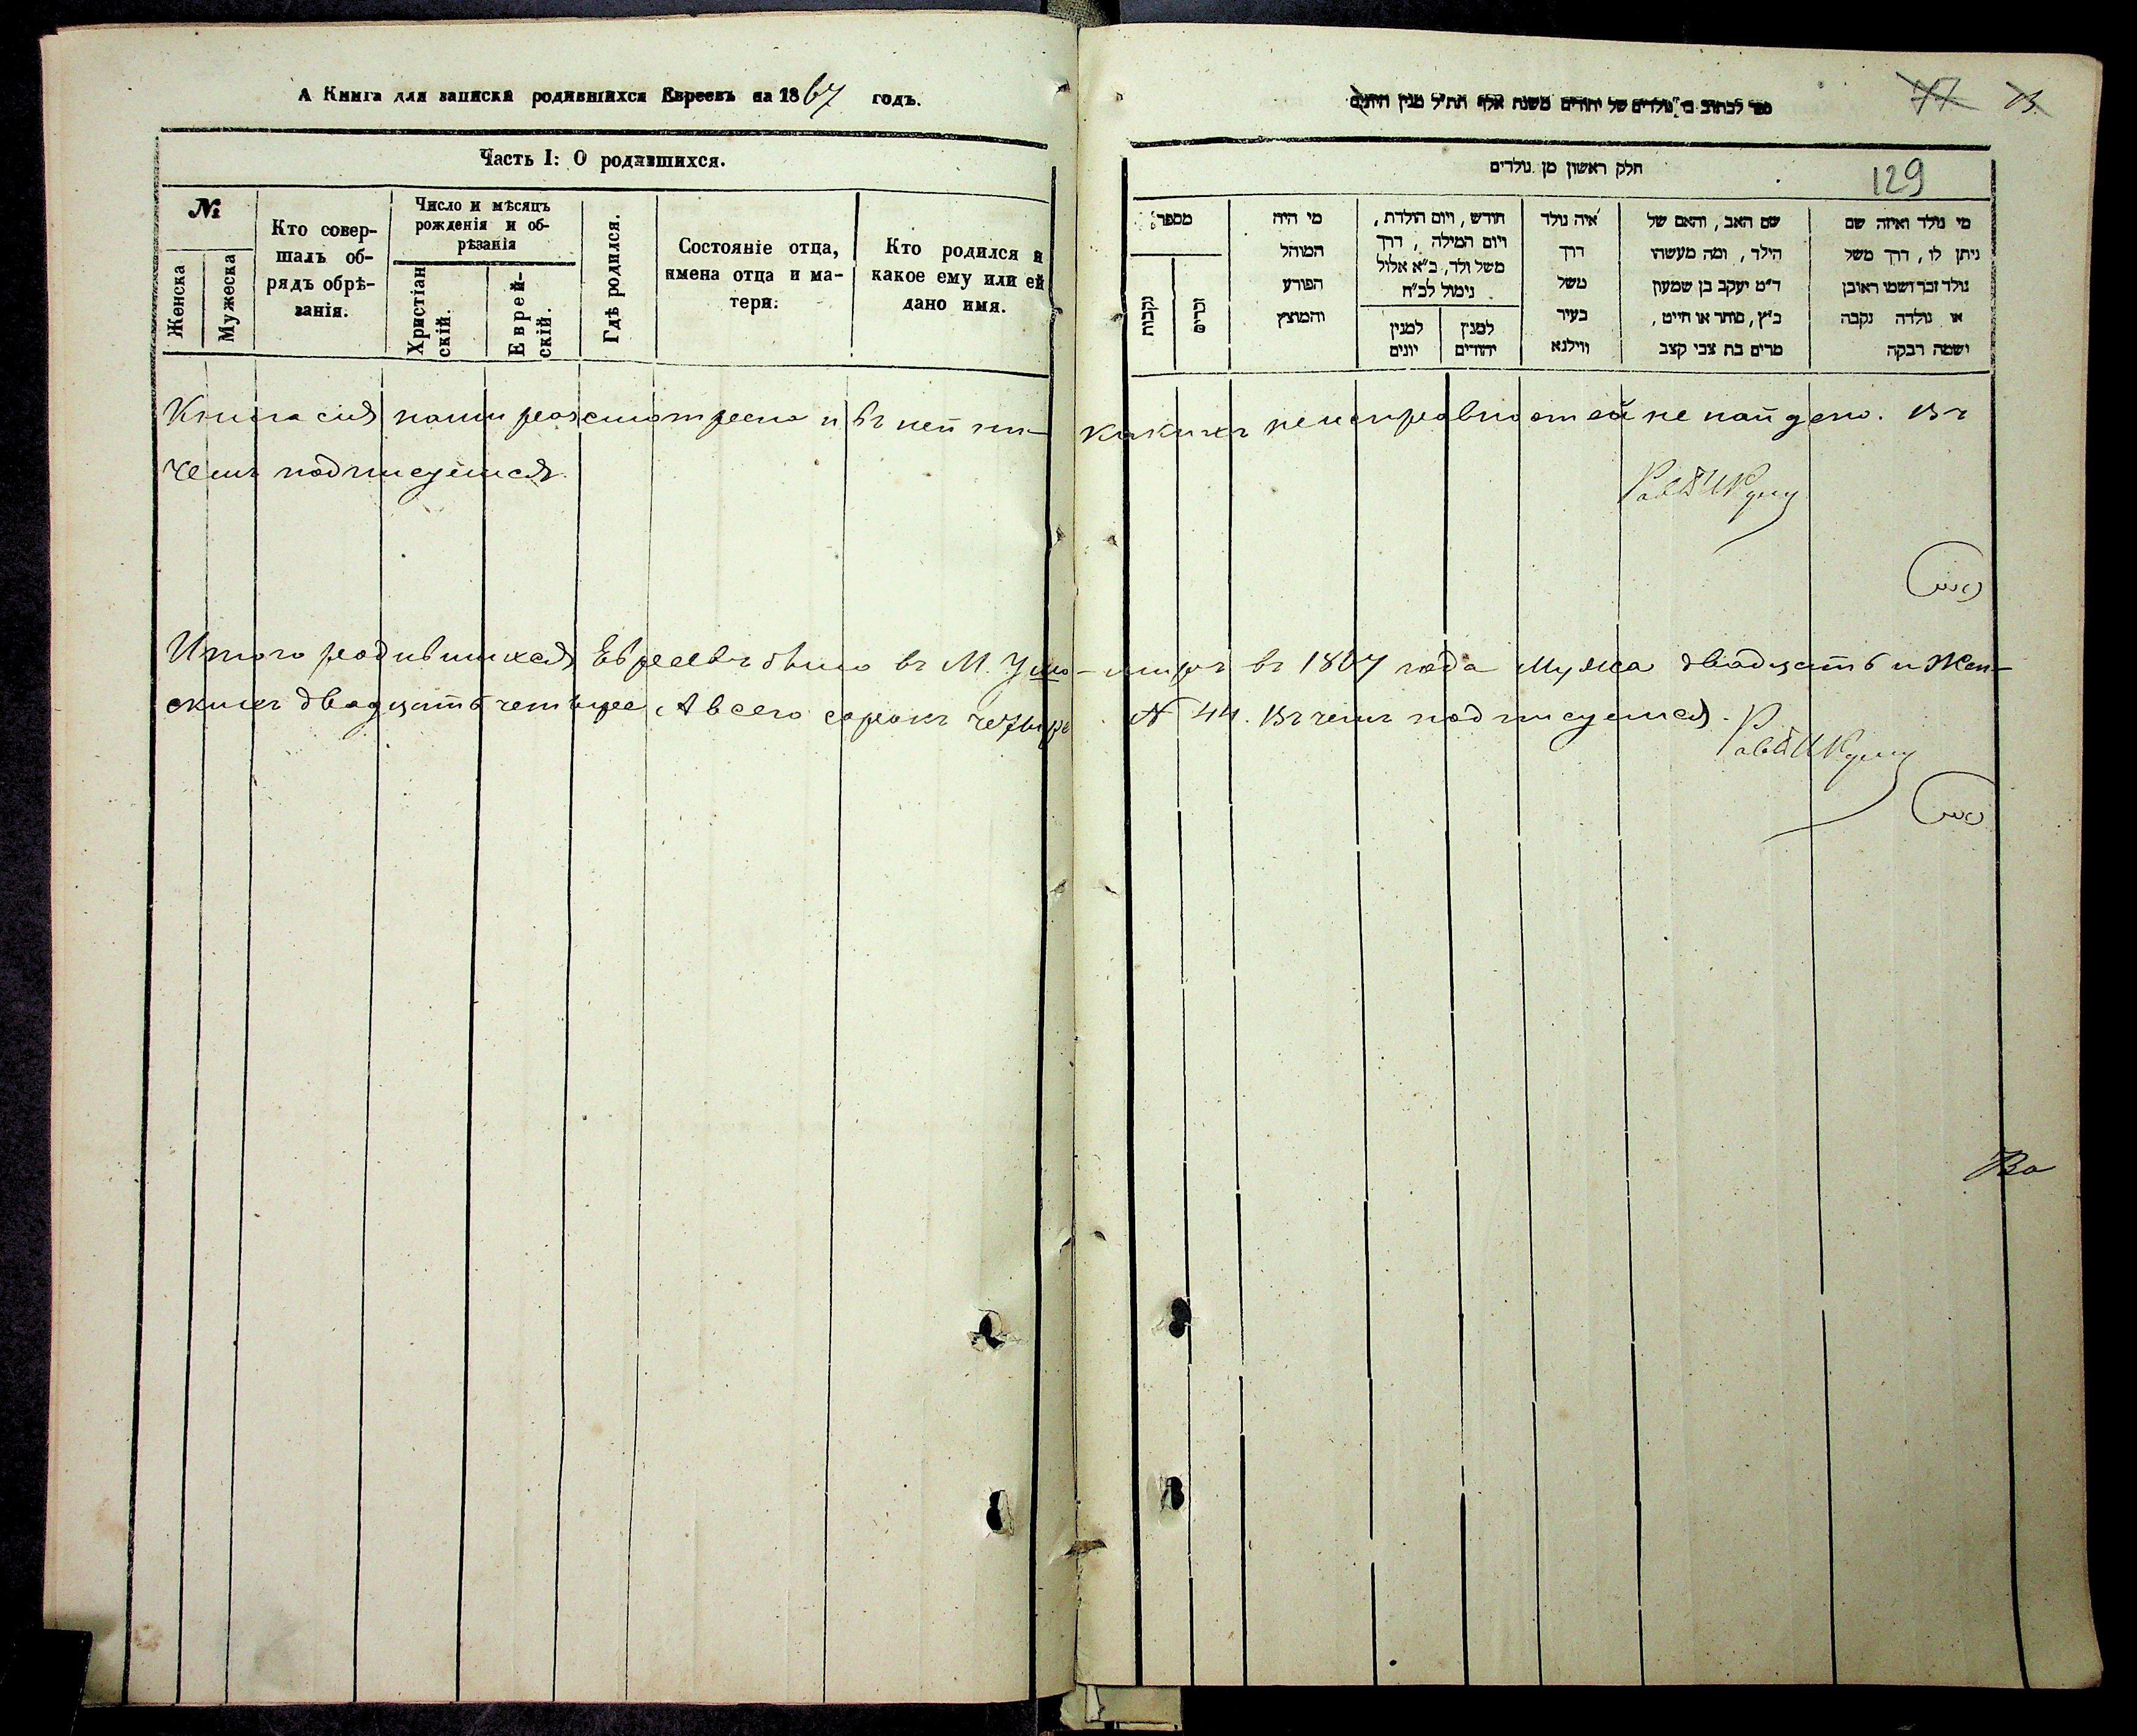 А Книга для записки родившихся Евреевъ на 1867 годъ.
Часть I: О родившихся.
№
Женска
Мужеска
Кто совер-
шалъ об-
рядъ обрѣ-
занія.
Число и мѣсяцъ
рожденія и об-
рѣзанія
Христіан
скій.
Еврей-
скій.
Гдѣ родился.
Состояніе отца,
имена отца и ма-
тери.
Кто родился и
какое ему или ей
дано имя.
ספר לכתוב בו נולדים של יהודים משנת אלף תת״ל מנין היונים
77
13
חלק ראשון מן נולדים
129
מספר
נקבות
זכרים
מי היה
המוהל
הפורע
והמוצץ
חודש, ויום הולדת,
ויום המילה, דרך
משל ולד, כ״א אלול
נימול לכ״ח
למנין
יונים
למנין
יהודים
איה נולד
דרך
משל
בעיר
ווילנא
שם האב, והאם של
הילד, ומה מעשהו
ד״מ יעקב בן שמעון
כ״ץ, סוחר או חייט,
מרים בת צבי קצב
מי נולד ואיזה שם
ניתן לו, דרך משל
נולד זכר ושמו ראובן
או נולדה נקבה
ושמה רבקה
Книга сия нами разсмотрена и въ ней ни- какихъ неисправностей не найдено. Въ
чемъ подписуемся.
Итого родившихся Евреевъ было въ М. в 1867 года Мужа двадцать и Жен-
скихъ двадцать четыре А всего сорокъ четыре № 44. Въ чемъ подписуемся.